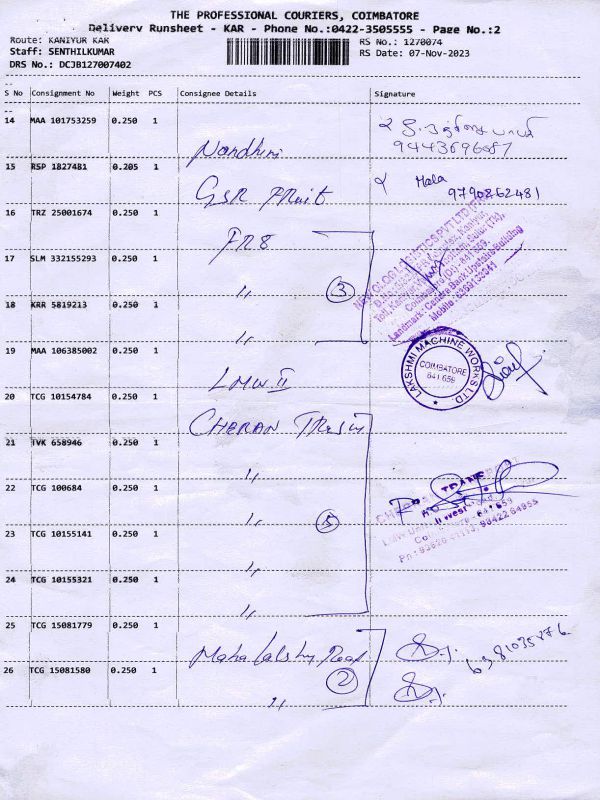 THE PROFESSIONAL COURIERS, COIMBATORE
Delivery Runsheet - KAR - Phone No.:0422-3505555 - Page No.:2
Route: KANIYUR KAR
RS No.: 1270074
Staff: SENTHILKUMAR
RS Date: 07-Nov-2023
DRS No.: DCJB127007402
S No Consignment No Weight PCS Consignee Details Signature
14 MAA 101753259 0.250 1
Nandhini
9443696087
15 RSP 1827481 0.205 1
GSR Fruit
Mala
9790862481
16 TRZ 25001674 0.250 1
FR8
17 SLM 332155293 0.250 1
〃
3
18 KRR 5819213 0.250 1
〃
19 MAA 106385002 0.250 1
LMW II
LAKSHMI MACHINE WORKS LTD.
COIMBATORE
641 659
20 TCG 10154784 0.250 1
CHERAN
21 TVK 658946 0.250 1
〃
22 TCG 100684 0.250 1
〃
5
23 TCG 10155141 0.250 1
〃
24 TCG 10155321 0.250 1
〃
25 TCG 15081779 0.250 1
Maha
26 TCG 15081580 0.250 1
2
〃